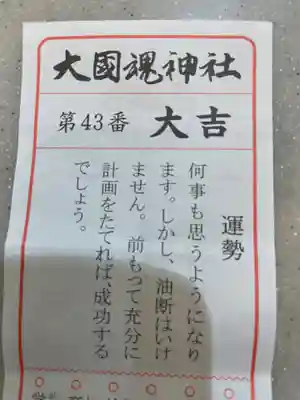 大國魂神社
第43番 大吉
運勢
何事も思うようになり
ます。しかし、油断はいけ
ません。前もって充分に
計画をたてれば、成功する
でしょう。